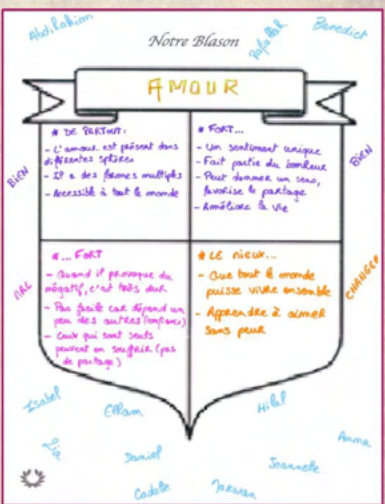 Abdelhakim
Benedict
Notre Blason
AMOUR
* DE PARTOUT:
- L'amour est présent dans
différentes sphères
- Il a des formes multiples
- Accessible à tout le monde
* FORT...
- Un sentiment unique
- Fait partie du bonheur
- Peut donner un sens,
favorise le partage
- Améliore la vie
BIEN
BIEN
* ... FORT
- Quand il provoque du
négatif, c'est très dur
- Pas facile car dépend un
peu des autres (confiance)
- Ceux qui sont seuls
peuvent en souffrir (pas
de partage)
* LE mieux...
- Que tout le monde
puisse vivre ensemble
- Apprendre à aimer
sans peur
MAL
CHANGER
Isabel
Hilal
Anna
Daniel
Jeannette